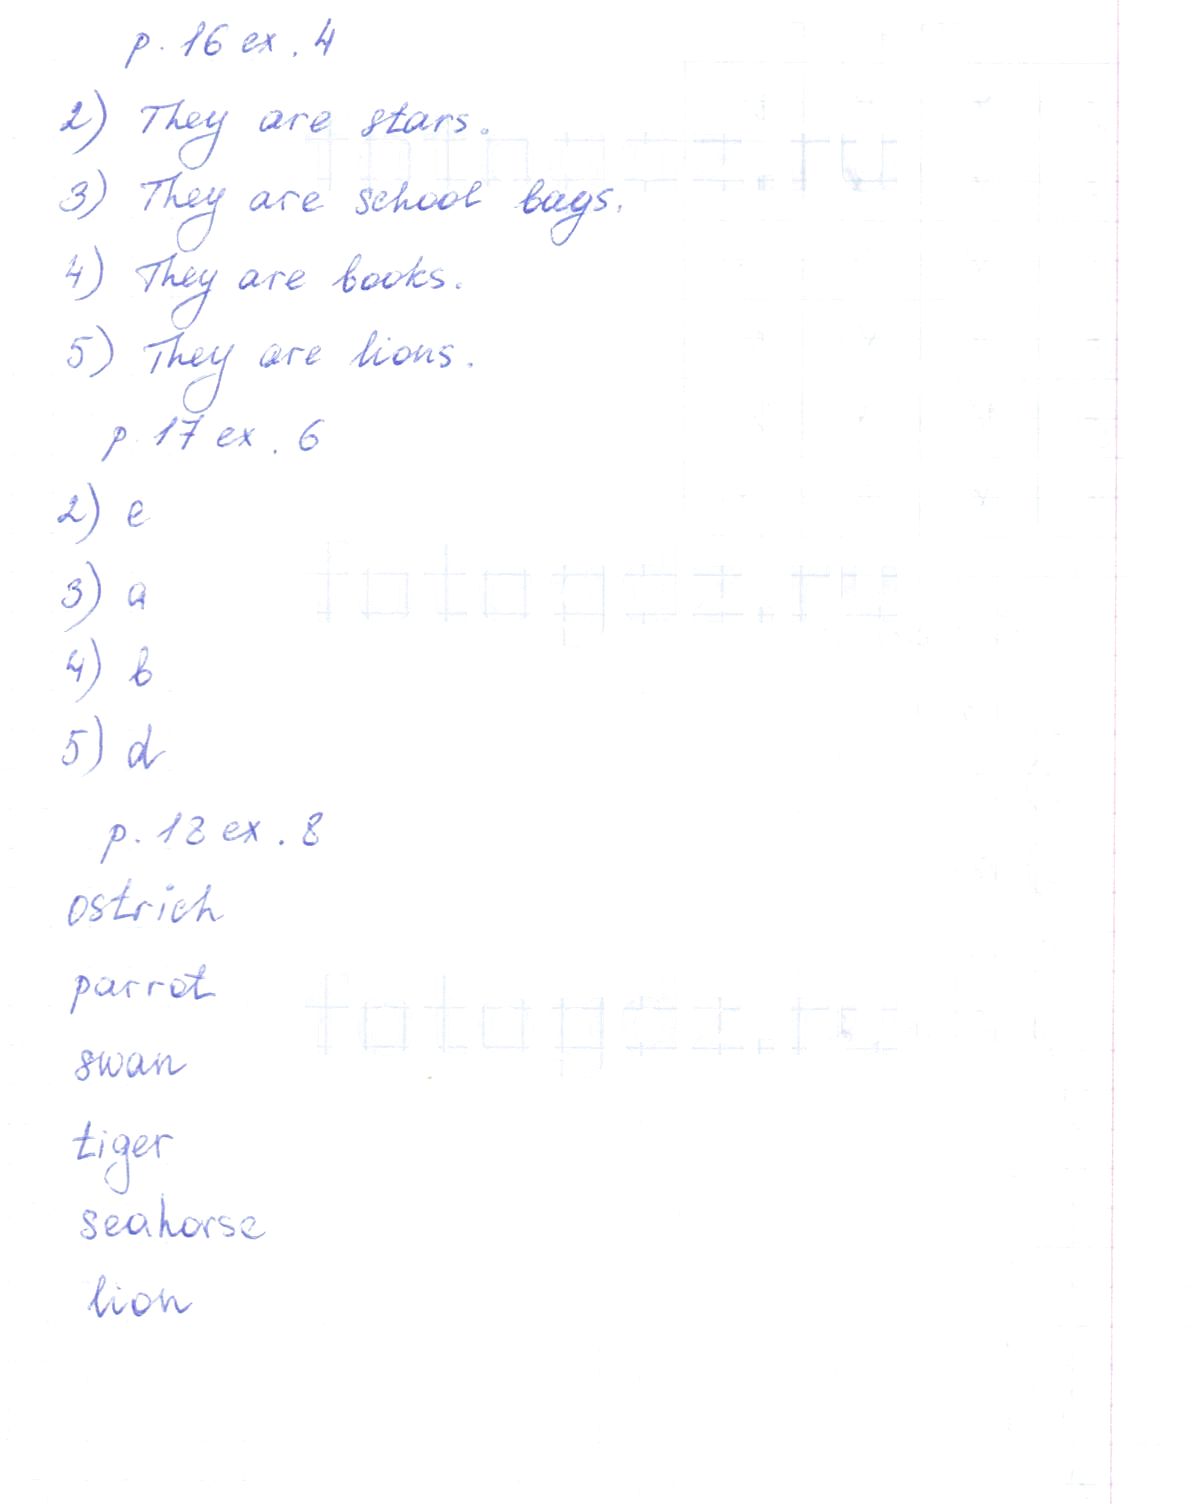 p. 16 ex. 4
2) They are stars.
fotogdz.ru
3) They are school bags.
4) They are books.
5) They are lions.
p. 17 ex. 6
2) e
3) a
fotogdz.ru
4) b
5) d
p. 18 ex. 8
ostrich
parrot
fotogdz.ru
swan
tiger
seahorse
lion